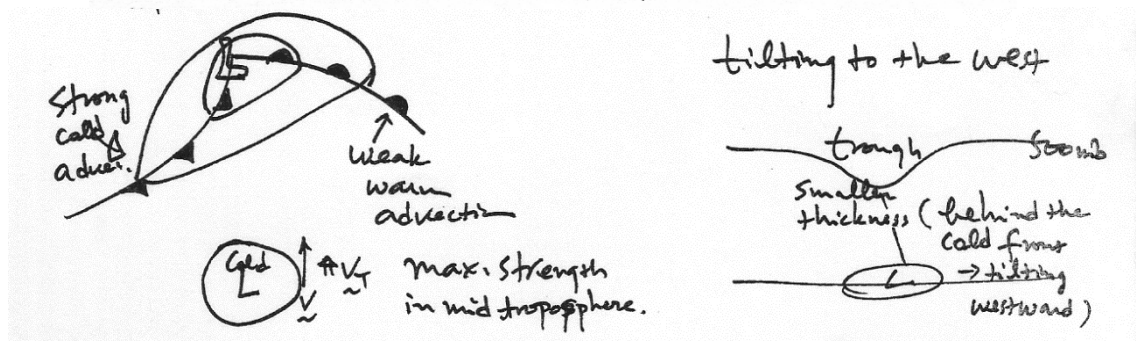 L
Strong
cold
advec.
weak
warm
advection
Cold
L
V_T
V
max. strength
in mid troposphere.
tilting to the west
trough
500mb
smaller
thickness (behind the
cold front
→ tilting
westward)
L